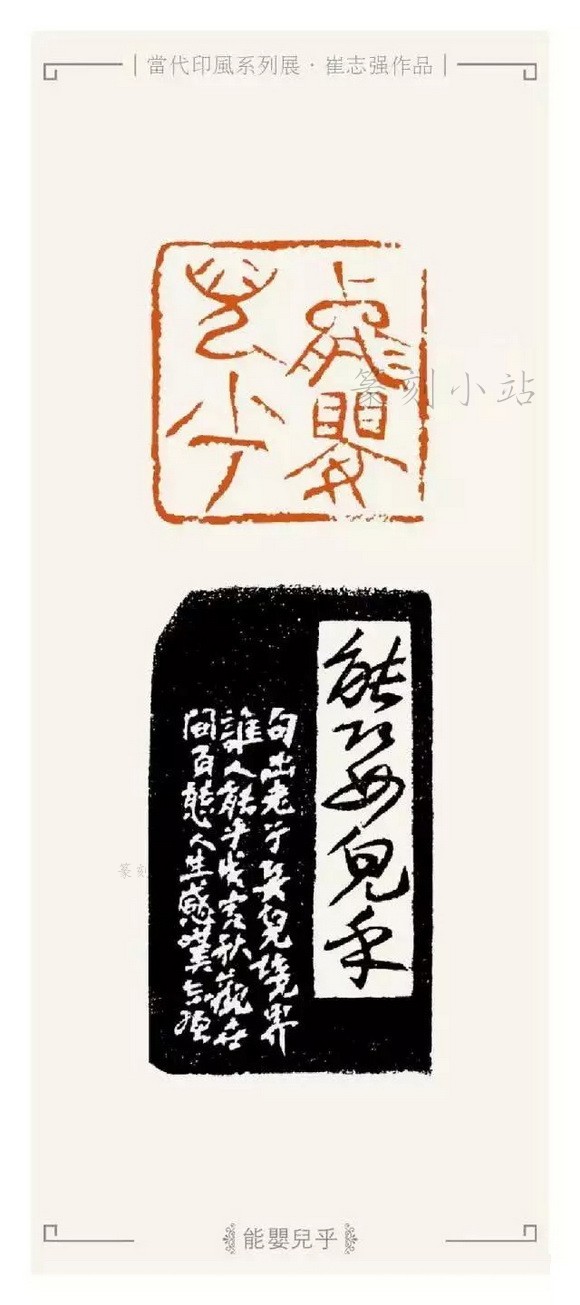 當代印風系列展·崔志强作品
能嬰兒乎
篆刻小站
能嬰兒乎
句出老子嬰兒境界
誰人能乎癸亥秋觀世
間百態人生感嘆志强
篆刻
能嬰兒乎